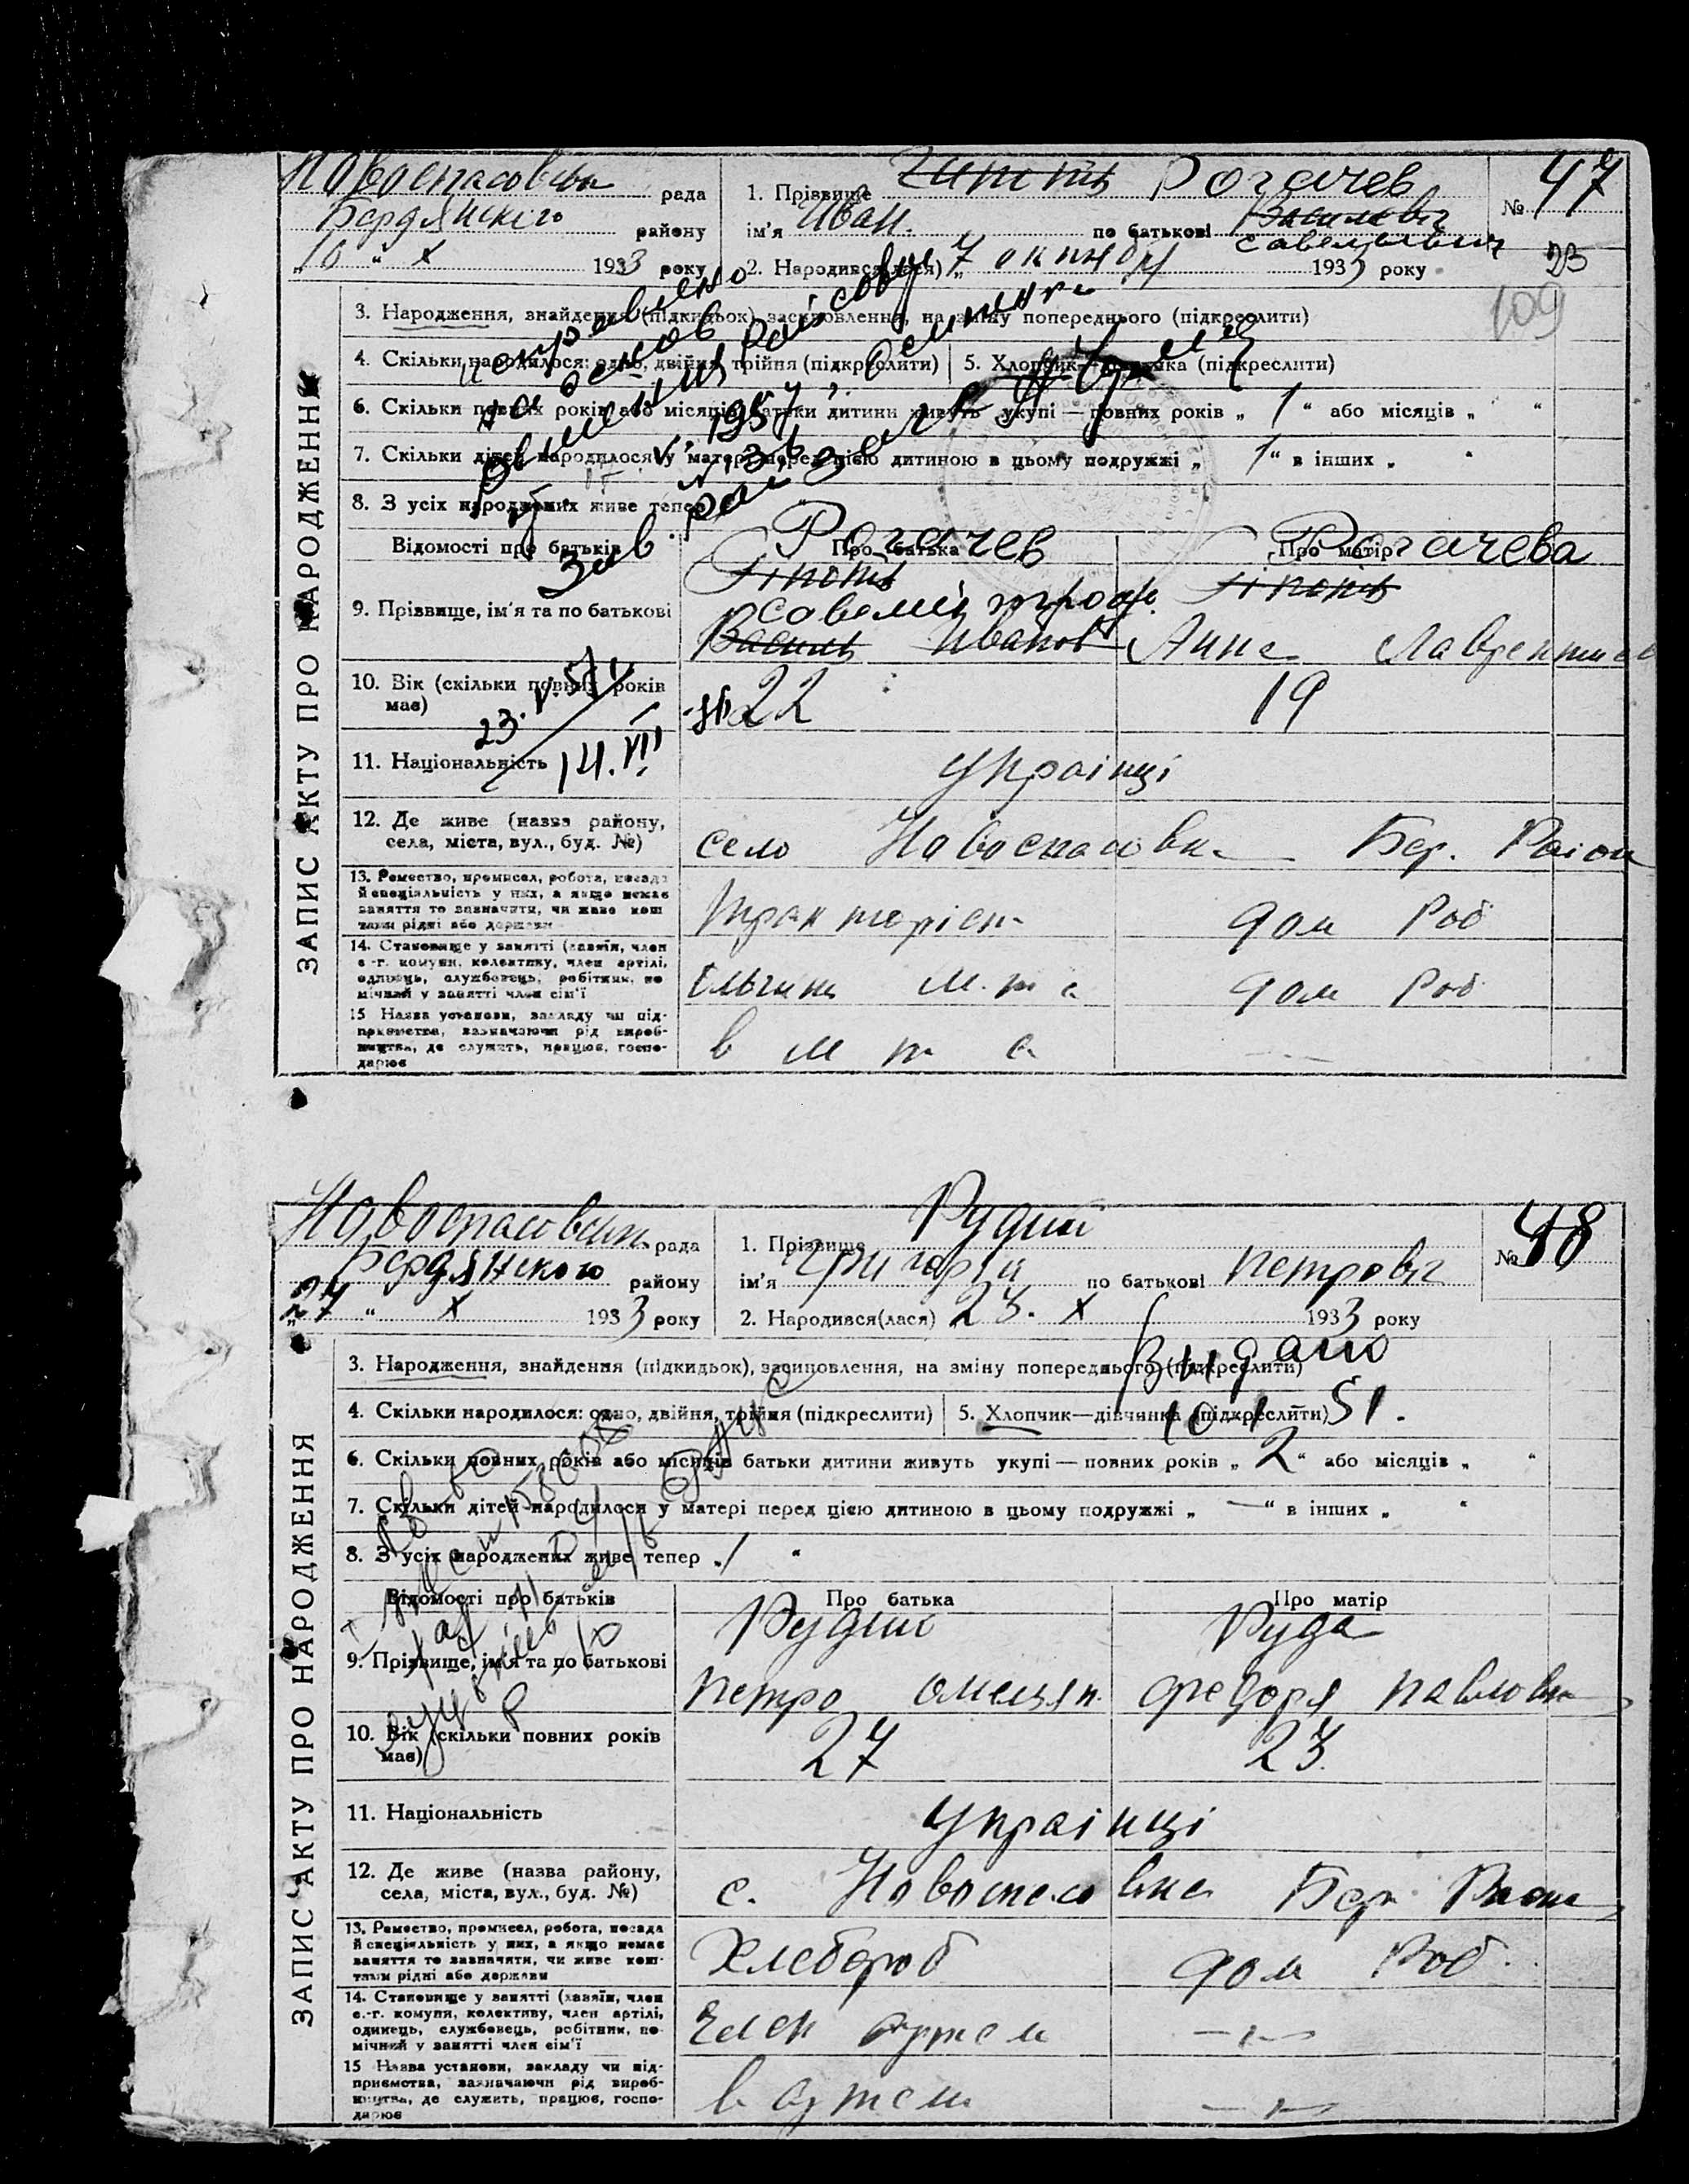 ЗАПИС АКТУ ПРО НАРОДЖЕННЯ
Новоспасовська рада
Бердянського району
"10" X 1933 року
1. Прізвище Рогачев
ім'я Иван. по батькові Василовіч
Савельевич
2. Народився(лася) "7 октября 1933 року
№ 47
23
109
3. Народження, знайдення (підкидьок), засиновлення, на зміну попереднього (підкреслити)
4. Скільки народилося: одно, двійня, трійня (підкреслити)
5. Хлопчик—дівчинка (підкреслити)
6. Скільки повних років або місяців батьки дитини живуть укупі — повних років „ 1 “ або місяців „ “
7. Скільки дітей народилося у матері перед цією дитиною в цьому подружжі „ 1 “ в інших „ “
8. З усіх народжених живе тепер
исправлено
на основ
решения райсову
1957
Зав.
Відомості про батьків
Про батька
Про матір
9. Прізвище, ім'я та по батькові
Рогачев
Савелий
Василь Иванов
Рогачева
Анна Лаврентиев
10. Вік (скільки повних років має)
22
19
23. V. 57
14. VII
11. Національність
Українці
12. Де живе (назва району, села, міста, вул., буд. №)
село Новоспасовка Бер. Район
13. Ремество, промисел, робота, посада й спеціальність у них, а якщо немає заняття то зазначити, чи живе коштами рідні або держави
тракторіст
дом Роб
14. Становище у занятті (хазяїн, член с.-г. комуни, колективу, член артілі, одинець, службовець, робітник, помічний у занятті член сім'ї
М.т.с
дом Роб
15 Назва установи, закладу чи підприємства, зазначаючи рід виробництва, де служить, працює, господарює
в м т с
ЗАПИС АКТУ ПРО НАРОДЖЕННЯ
Новоспасовськ. рада
Бердянского району
"27" X 1933 року
1. Прізвище Рудий
ім'я Григорій по батькові Петровіч
2. Народився(лася) „23. X 1933 року
№ 48
3. Народження, знайдення (підкидьок), засиновлення, на зміну попереднього (підкреслити)
Видано
4. Скільки народилося: одно, двійня, трійня (підкреслити)
5. Хлопчик—дівчинка (підкреслити)
51.
6. Скільки повних років або місяців батьки дитини живуть укупі — повних років „ 2 “ або місяців „ “
7. Скільки дітей народилося у матері перед цією дитиною в цьому подружжі „ — “ в інших „ “
8. З усіх народжених живе тепер „ 1 “
Відомості про батьків
Про батька
Про матір
9. Прізвище, ім'я та по батькові
Рудий
Петро Омелян.
Руда
Федора Павловна
10. Вік (скільки повних років має)
27
23.
11. Національність
Українці
12. Де живе (назва району, села, міста, вул., буд. №)
с. Новоспасовка Бер. Район
13. Ремество, промисел, робота, посада й спеціальність у них, а якщо немає заняття то зазначити, чи живе коштами рідні або держави
Хлебороб
дом Роб.
14. Становище у занятті (хазяїн, член с.-г. комуни, колективу, член артілі, одинець, службовець, робітник, помічний у занятті член сім'ї
Член Артели
— " —
15 Назва установи, закладу чи підприємства, зазначаючи рід виробництва, де служить, працює, господарює
в Артели
— " —